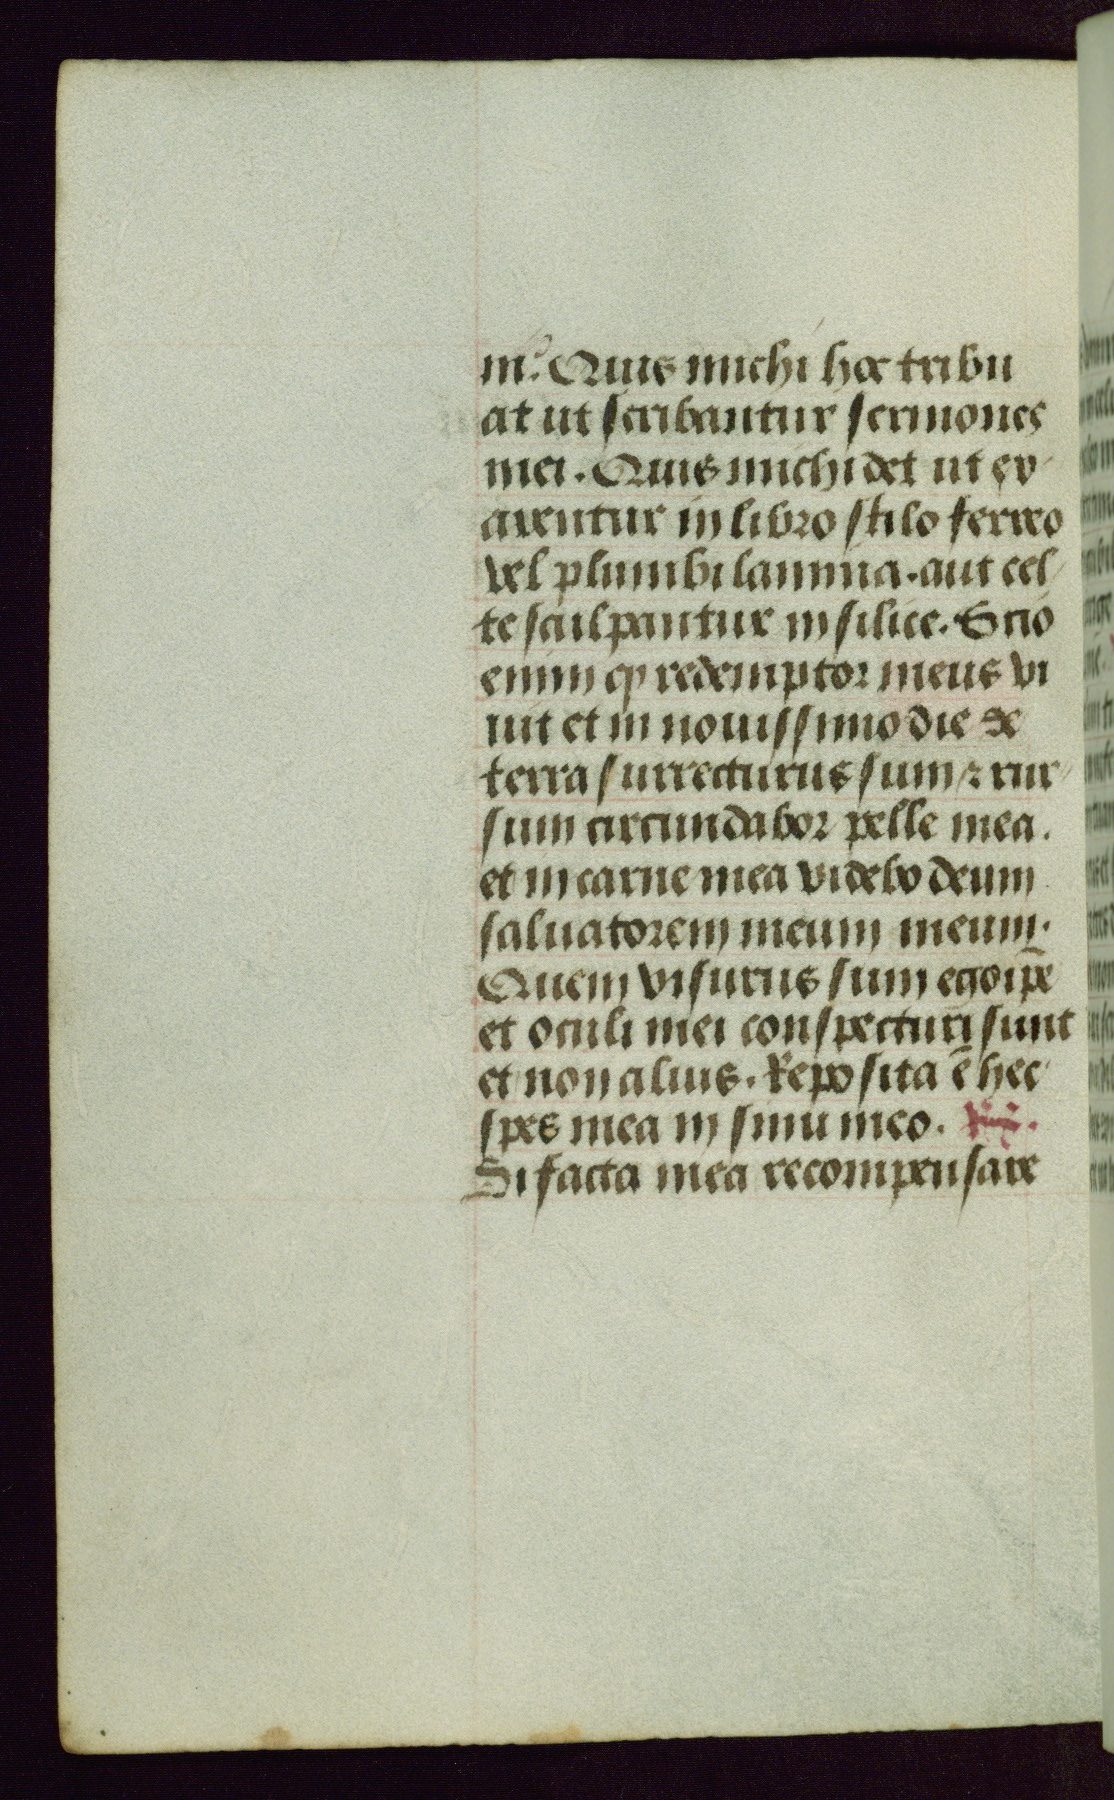 ni? Quis michi hoc tribu
at ut scribantur sermones
mei. Quis michi det ut ex
arentur in libro stilo ferreo
vel plumbi lamina. aut cel
te sculpantur in silice. Scio
enim qͥ redemptor meus vi
uit et in nouissimo die de
terra surrecturus sum ⁊ rur
sum circundabor pelle mea.
et in carne mea videbo deum
saluatorem meum meum.
Quem visurus sum ego ip̄e
et oculi mei conspecturi sunt
et non alius. Reposita ē hec
spes mea in sinu meo.
Si facta mea recompensare